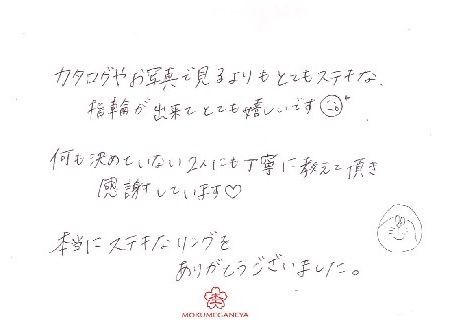 カタログやお写真で見るよりもとてもステキな、
指輪が出来てとても嬉しいです
何も決めていない2人にも丁寧に教えて頂き
感謝しています♡
本当にステキなリングを
ありがとうございました。
MOKUMEGANEYA